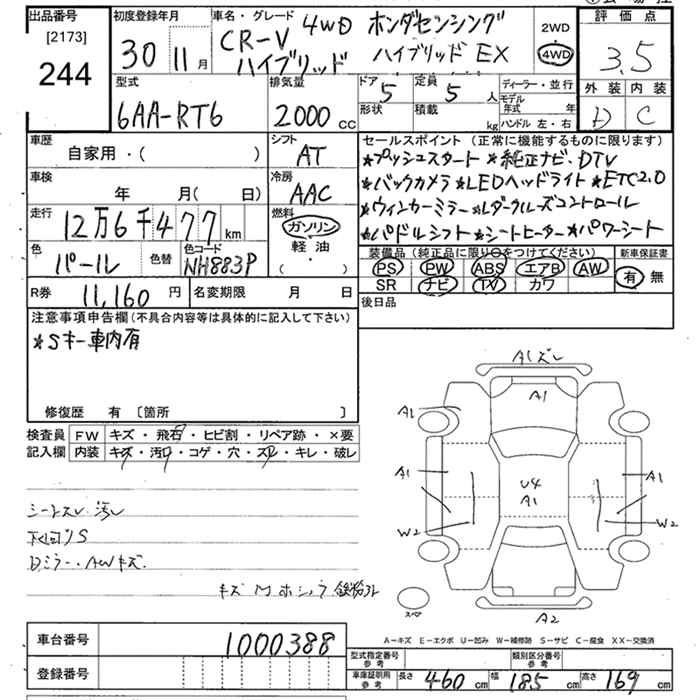 出品番号
[2173]
244
初度登録年月
30 11月
車名・グレード
4WD ホンダセンシング
CR-V ハイブリッド EX
ハイブリッド
2WD
4WD
評価点
3.5
外装 内装
D C
型式
6AA-RT6
排気量
2000 cc
ドア 5
形状
定員 5 人
積載 kg
ディーラー・並行
モデル年式 年
ハンドル 左・右
車歴
自家用・( )
シフト
AT
車検
年 月( 日)
冷房
AAC
走行
12万6千477 km
燃料
ガソリン
軽油
・( )
色
パール
色替
色コード
NH883P
R券 11,160 円
名変期限 月 日
セールスポイント (正常に機能するものに限ります)
★プッシュスタート ★純正ナビ・DTV
★バックカメラ ★LEDヘッドライト ★ETC2.0
★ウィンカーミラー ★レダークルーズコントロール
★パドルシフト ★シートヒーター ★パワーシート
装備品 (純正品に限り○をつけてください)
新車保証書
PS PW ABS エアB AW
SR ナビ TV カワ
有 無
後日品
注意事項申告欄(不具合内容等は具体的に記入して下さい)
★Sキー車内有
修復歴 有 [箇所 ]
検査員記入欄
FW キズ・飛石・ヒビ割・リペア跡・×要
内装 キズ・汚れ・コゲ・穴・スレ・キレ・破レ
シートスレ 汚レ
下回りS
Dミラー・AWキズ
A1ズレ
A1
A1
A1
U4
A1
A1
W2
W2
スペア
A2
A-キズ E-エクボ U-凹み W-補修跡 S-サビ C-腐食 XX-交換済
車台番号
1000388
登録番号
型式指定番号
参考
類別区分番号
参考
車庫証明用
参考
長さ 460 cm 幅 185 cm 高さ 169 cm